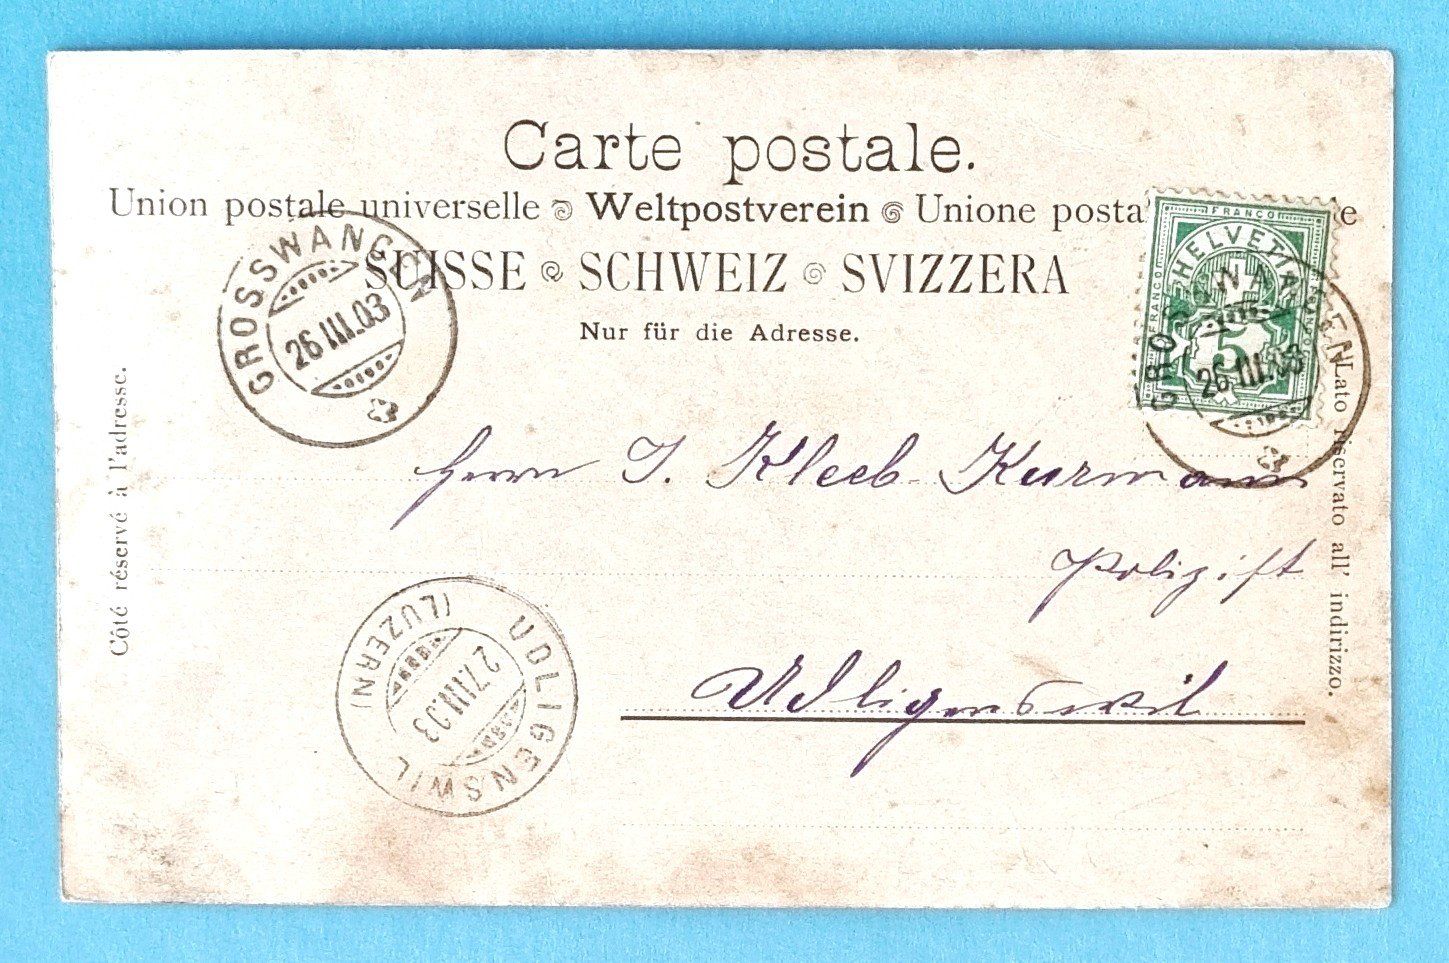 Carte postale.
Union postale universelle Weltpostverein Unione posta e
SUISSE SCHWEIZ SVIZZERA
Nur für die Adresse.
GROSSWANGEN
26.III.03
FRANCO
HELVETIA
FRANCO
5
GROSSWANGEN
26.III.03
Côté réservé à l'adresse.
Lato riservato all' indirizzo.
Herrn J. Kleeb-Kurmann
Udligenswil
UDLIGENSWIL
(LUZERN)
27.III.03